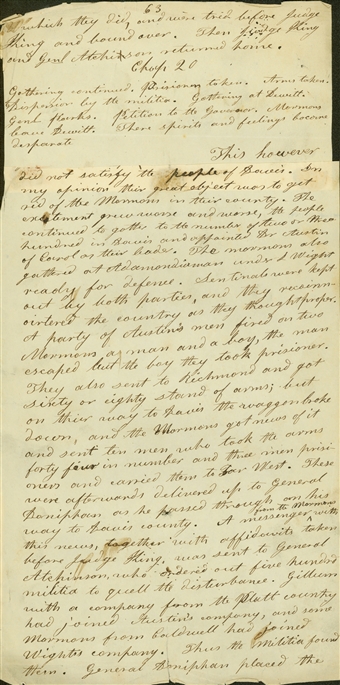 63
which they did, and were tried before Judge
King and bound over. Then Judge King
and Genl Atchinson returned home.
Chap 20
Gathering continued. Prisoners taken. Arms taken.
Dispersion by the militia. Gathering at Dewitt.
Genl Parks. Petition to the Governor. Mormons
leave Dewitt. There spirits and feelings become
desparate
This however
did not satisfy the people of Daveis. In
my opinion their great object was to get
rid of the Mormons in their county. The
excitement grew worse and worse, the people
continued to gather to the number of two or three
hundred in Daveis and appointed Dr Austin
of Carol as their head. The mormons also
gathered at Adamondiaman under L Wight
ready for defense. Sentinels were kept
out by both parties, and they reconn-
oitered the country as they thought proper.
A party of Austin's men fired on two
Mormons, a man and a boy, the man
escaped but the boy they took prisoner.
They also sent to Richmond and got
sixty or eighty stand of arms; but
on their way to Daveis the waggon broke
down, and the Mormons got news of it
and sent ten men who took the arms
forty four in number and three men pris-
oners and carried them to Far West. These
were afterwards delivered up to General
Doniphan as he passed through on his
way to Daveis county. A messenger from the Mormons with
this news, together with affidavits taken
before Judge King, was sent to General
Atchinson, who ordered out five hundred
militia to quell the disturbance. Gillium
with a company from the Platt country
had joined Austin's company, and some
Mormons from Caldwell had joined
Wight's company. Thus the Militia found
them. General Doniphan placed the